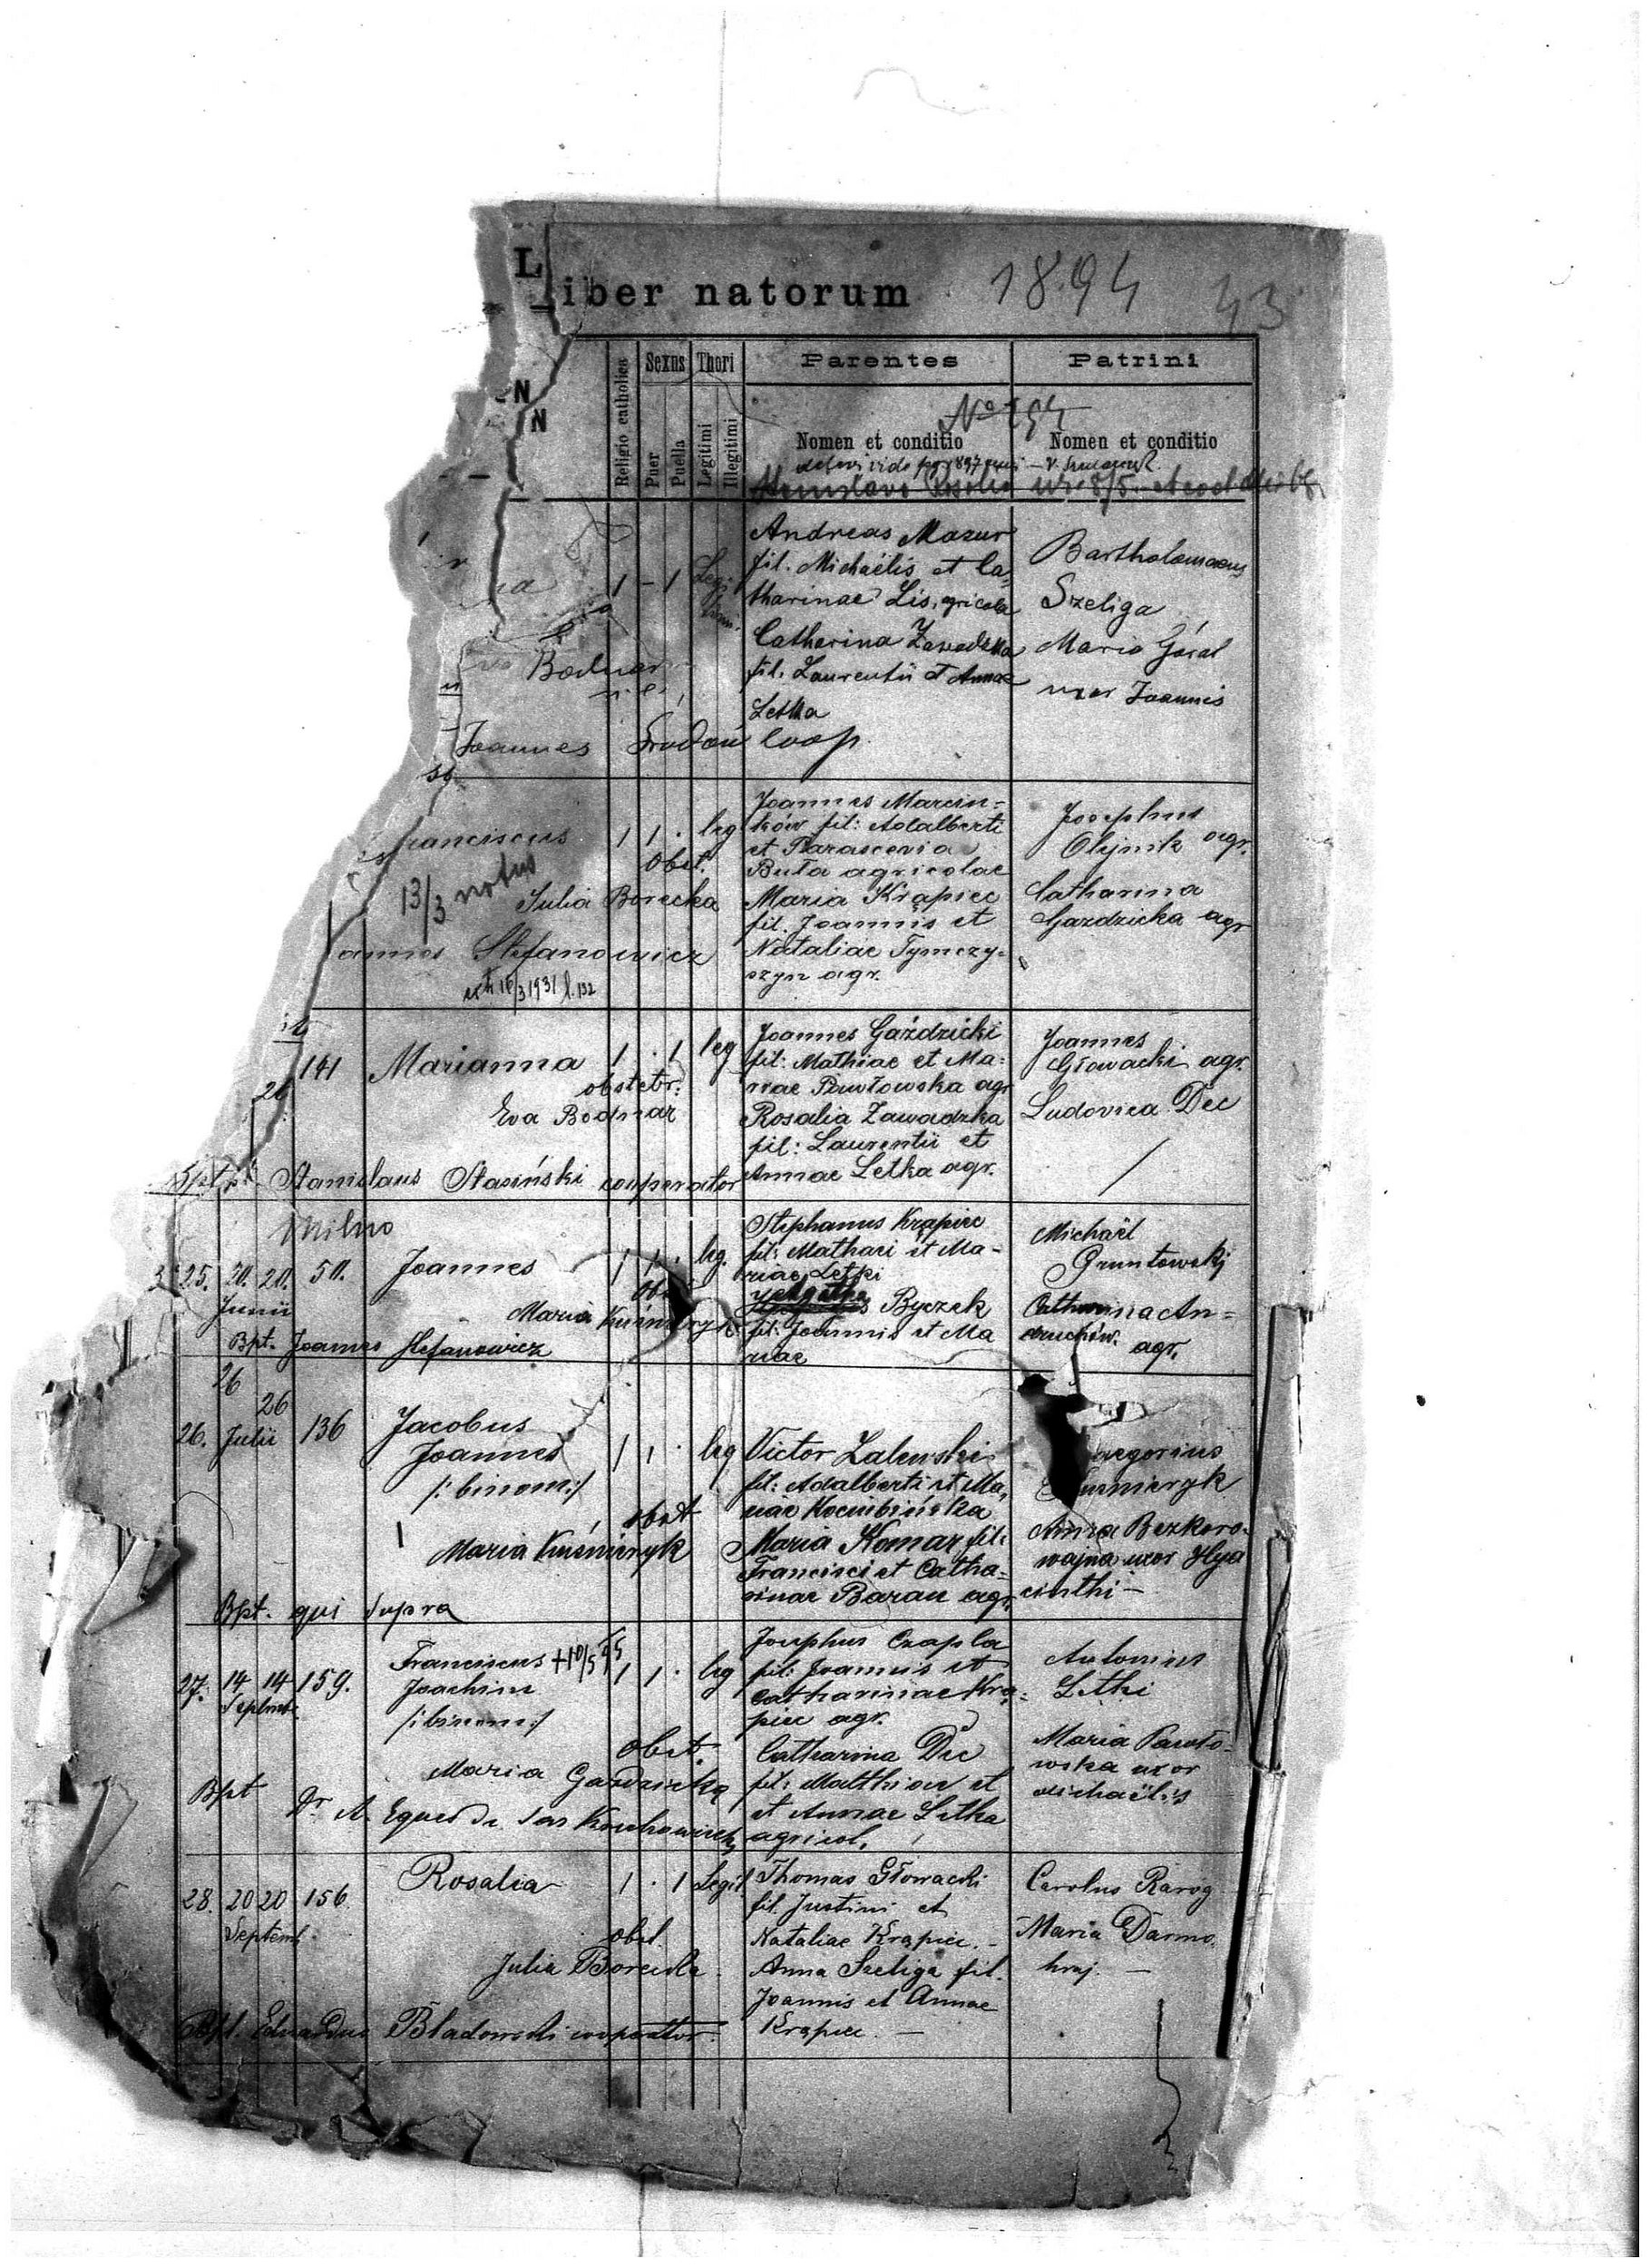 Liber natorum 1894 43
Religio catholica
Sexus
Puer
Puella
Thori
Legitimi
Illegitimi
Parentes
Patrini
N
N
Nomen et conditio
Nomen et conditio
na
1 - 1 Legi
tim.
Bodnar
Joannes coop.
Andreas Mazur
fil. Michaëlis et Ca-
tharinae Lis, agricola
Catherina Zawadzka
fil. Laurentii et Annae
Letka
Bartholomaeus
Szeliga
Maria Góral
uxor Joannis
Franciscus 1 1 . leg
Obst.
13/3 notus
Julia Borecka
annes Stefanowicz
16/3 1931 l. 132
Joannes Marcin-
ków fil: Adalberti
et Parascevia
Buła agricolae
Maria Krąpiec
fil. Joannis et
Nataliae Tymczy-
szyn agr.
Josephus
Olejnik agr.
Catharina
Gazdzicka agr
26
141 Marianna 1 . 1 leg
obstetr:
Eva Bodnar
Bpt. Stanislaus Stasiński cooperator
Joannes Gaździcki
fil: Mathiae et Ma-
riae Pawłowska agr
Rosalia Zawadzka
fil: Laurentii et
Annae Letka agr.
Joannes
Głowacki agr.
Ludovica Dec
Milno
25. 20. 20. 50. Joannes 1 1 . leg.
Junii
Obst
Maria Kuśmiryk
Bpt. Joannes Stefanowicz
Stephanus Krąpiec
fil: Mathaei et Ma-
riae Letki
Agatha Byczek
fil: Joannis et Ma
riae
Michaël
Gruntowskj
Catharina An-
druchów. agr.
26
26
26. Julii 136 Jacobus
Joannes 1 1 . leg
/: binom:/
obst
Maria Kuśmiryk
Bpt. qui supra
Victor Zalewski
fil: Adalberti et Ma-
riae
Maria Komar fil:
Francisci et Catha-
rinae Baran agr.
regorius
uśmieryk
Anna Bezkoro-
wajna uxor Hya
cinthi -
27. 14 14 159. Franciscus + 10/5 1 1 . leg
Septemb.
Joachim
/: binom:/
Obst.
Maria Gazdzicka
Bpt Dr A. Eques de Sas
Josephus Czapla
fil: Joannis et
Catharinae Krą-
piec agr.
Catharina Dec
fil: Matthiae et
et Annae Letka
agricol.
Antonius
Letki
Maria Pawło-
wska uxor
Michaëlis
28. 20 20 156. Rosalia 1 . 1 Legit.
Septemb.
obst.
Julia Borecka
Bpt. Eduardus Bładowski cooperator.
Thomas Głowacki
fil. Justini et
Nataliae Krąpiec. -
Anna Szeliga fil.
Joannis et Annae
Krąpiec. -
Carolus Rarog
Maria Darmo-
hraj. -